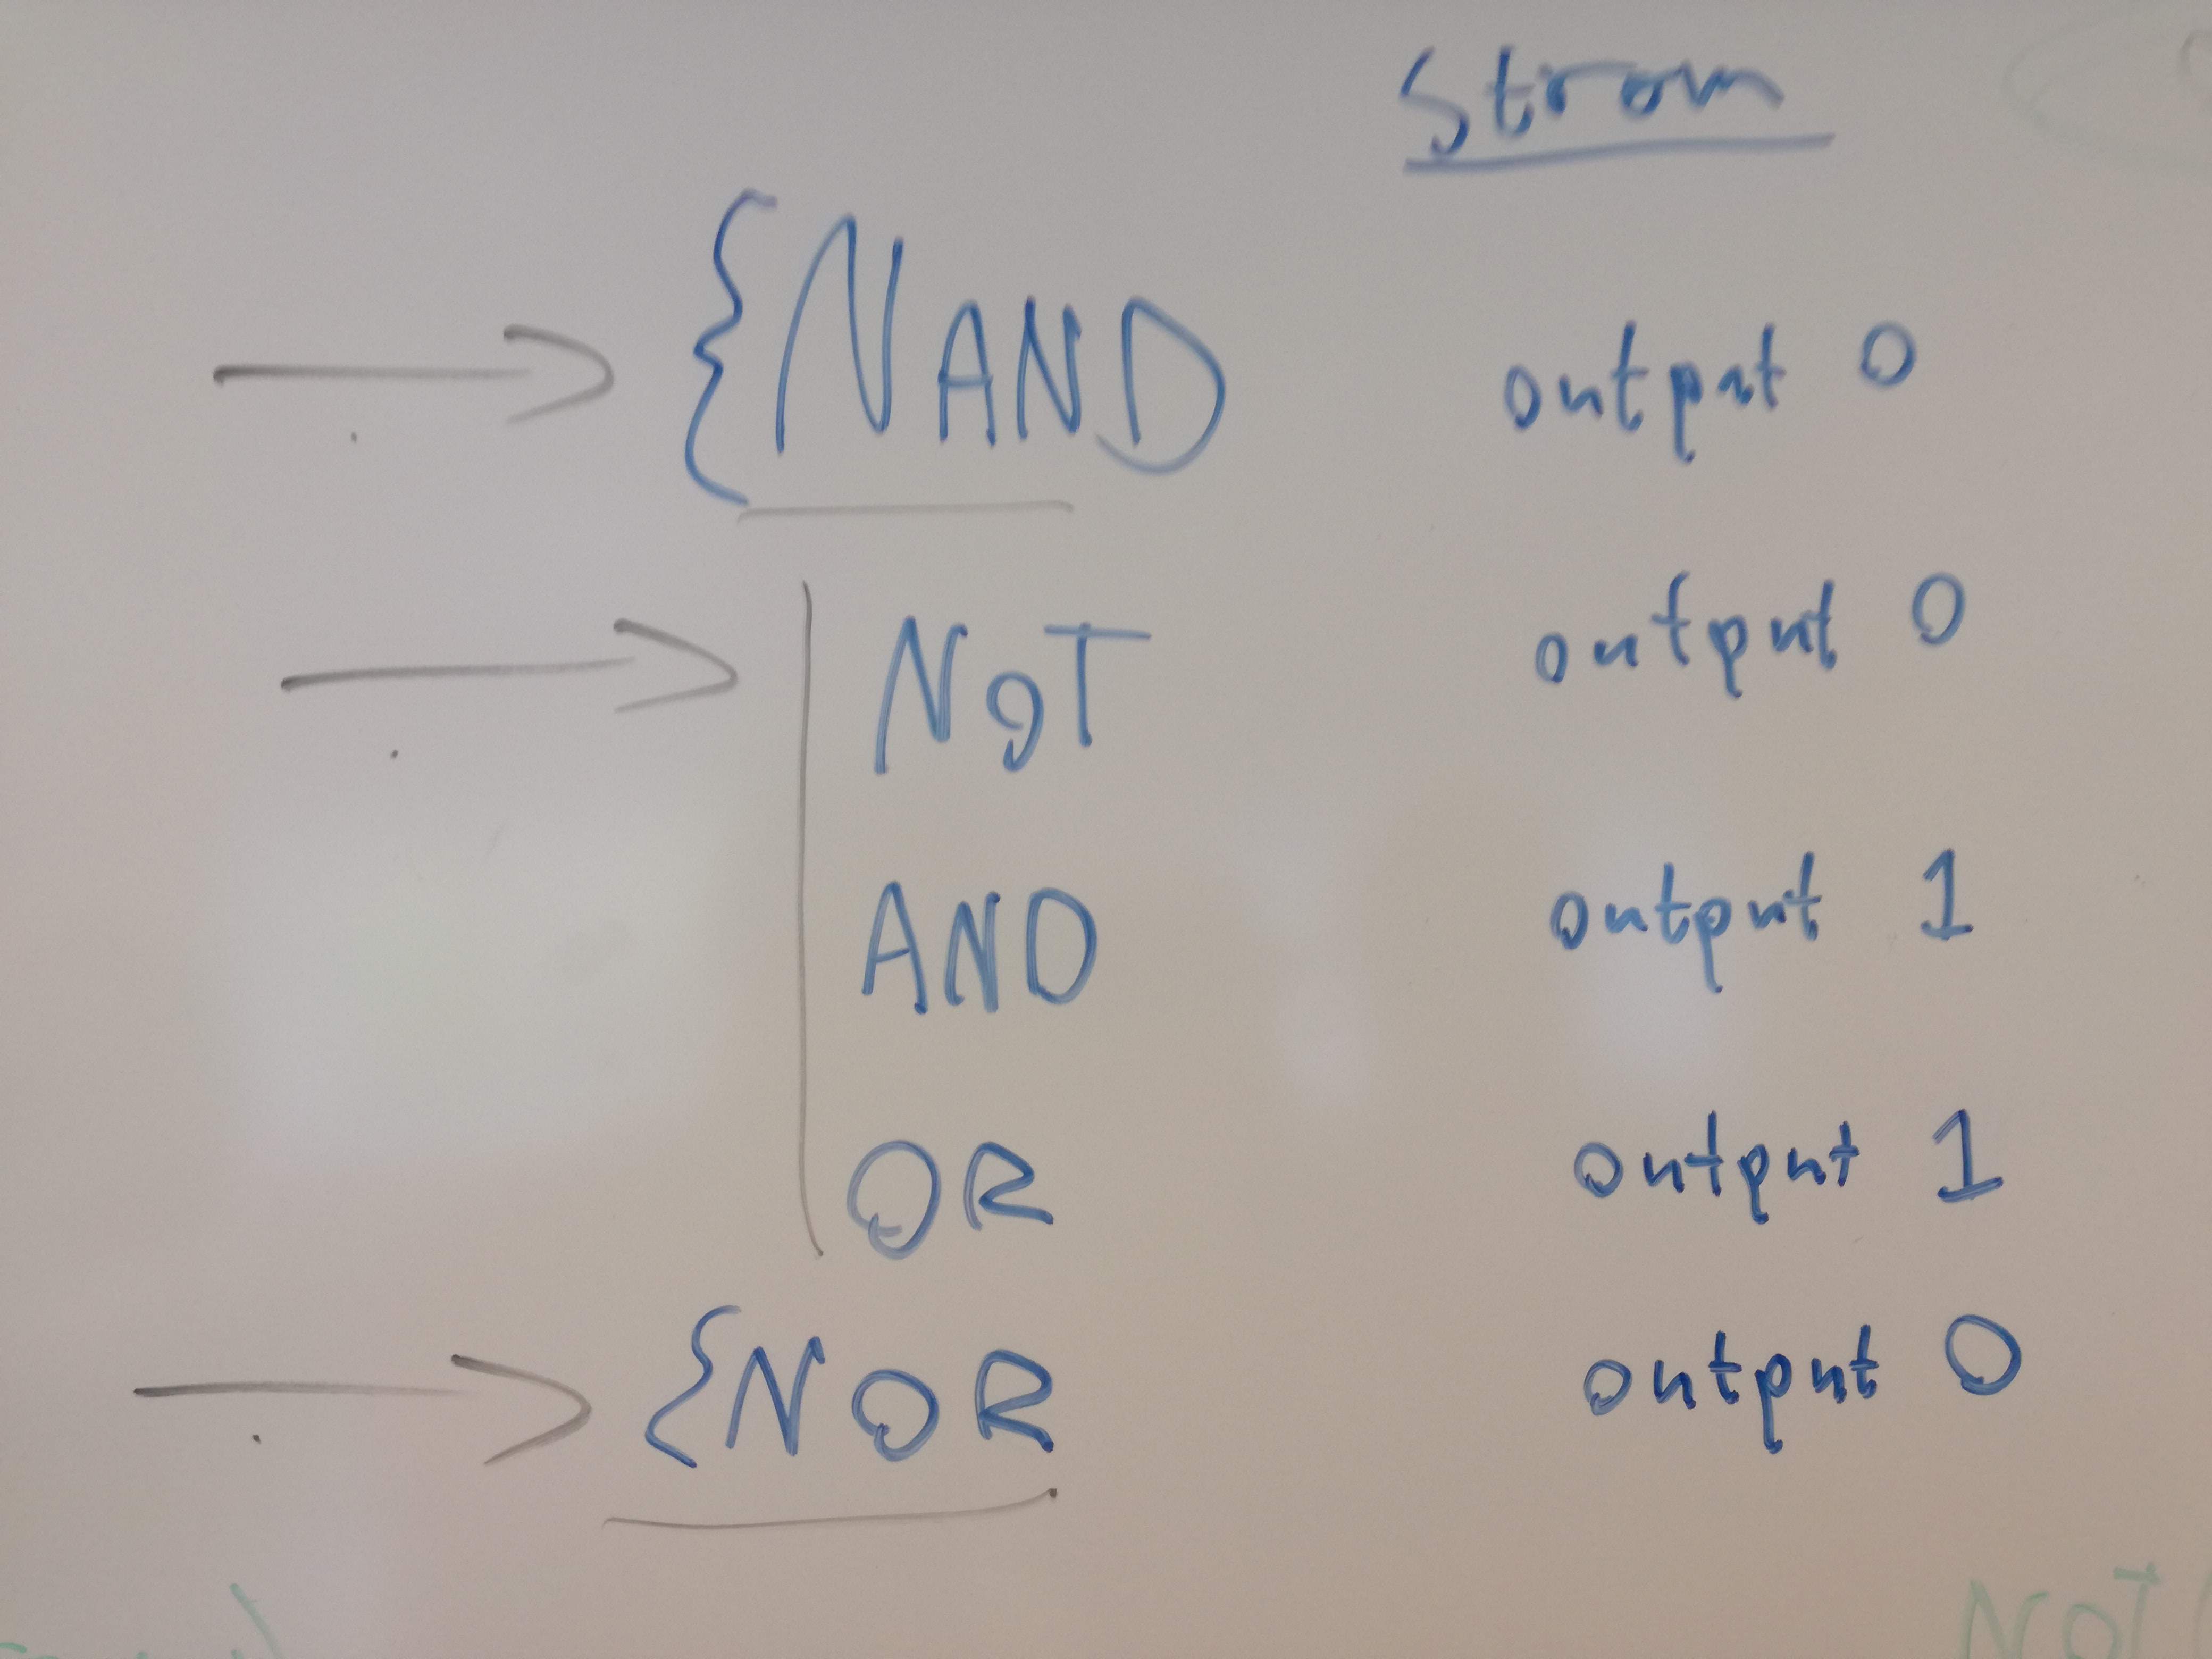 Strom
{NAND output 0
NOT output 0
AND output 1
OR output 1
{NOR output 0
NOT